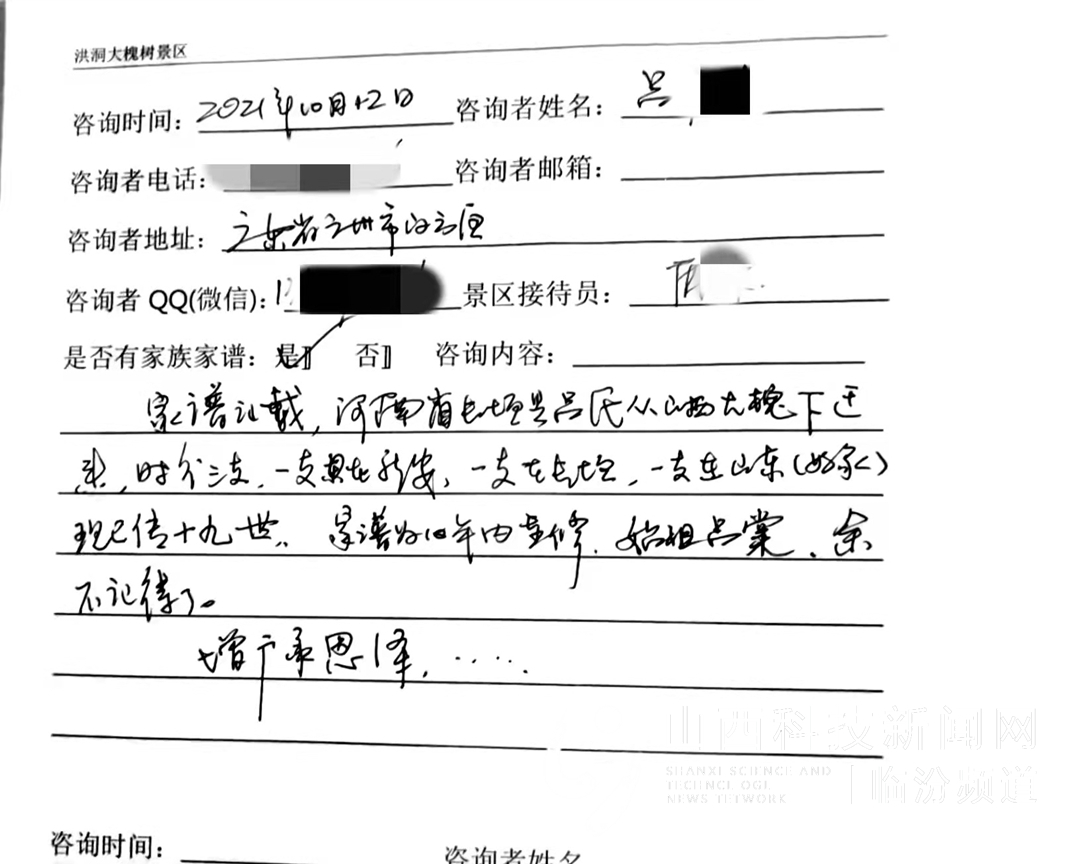 洪洞大槐树景区
咨询时间：2021年10月12日 咨询者姓名：吕
咨询者电话： 咨询者邮箱：
咨询者地址：广东省广州市白云区
咨询者 QQ(微信)：1 景区接待员：
是否有家族家谱：是】 否】 咨询内容：
家谱记载，河南省长垣县吕氏从山西大槐下迁
来，时分三支，一支 新安、一支在长垣，一支在山东（ ）
现已传十九世。家谱为10年内重修，始祖吕 ，余
不记得了。
增广承恩泽，……
山西科技新闻网
SHANXI SCIENCE AND
TECHNOLOGY
NEWS NETWORK
临汾频道
咨询时间： 咨询者姓名